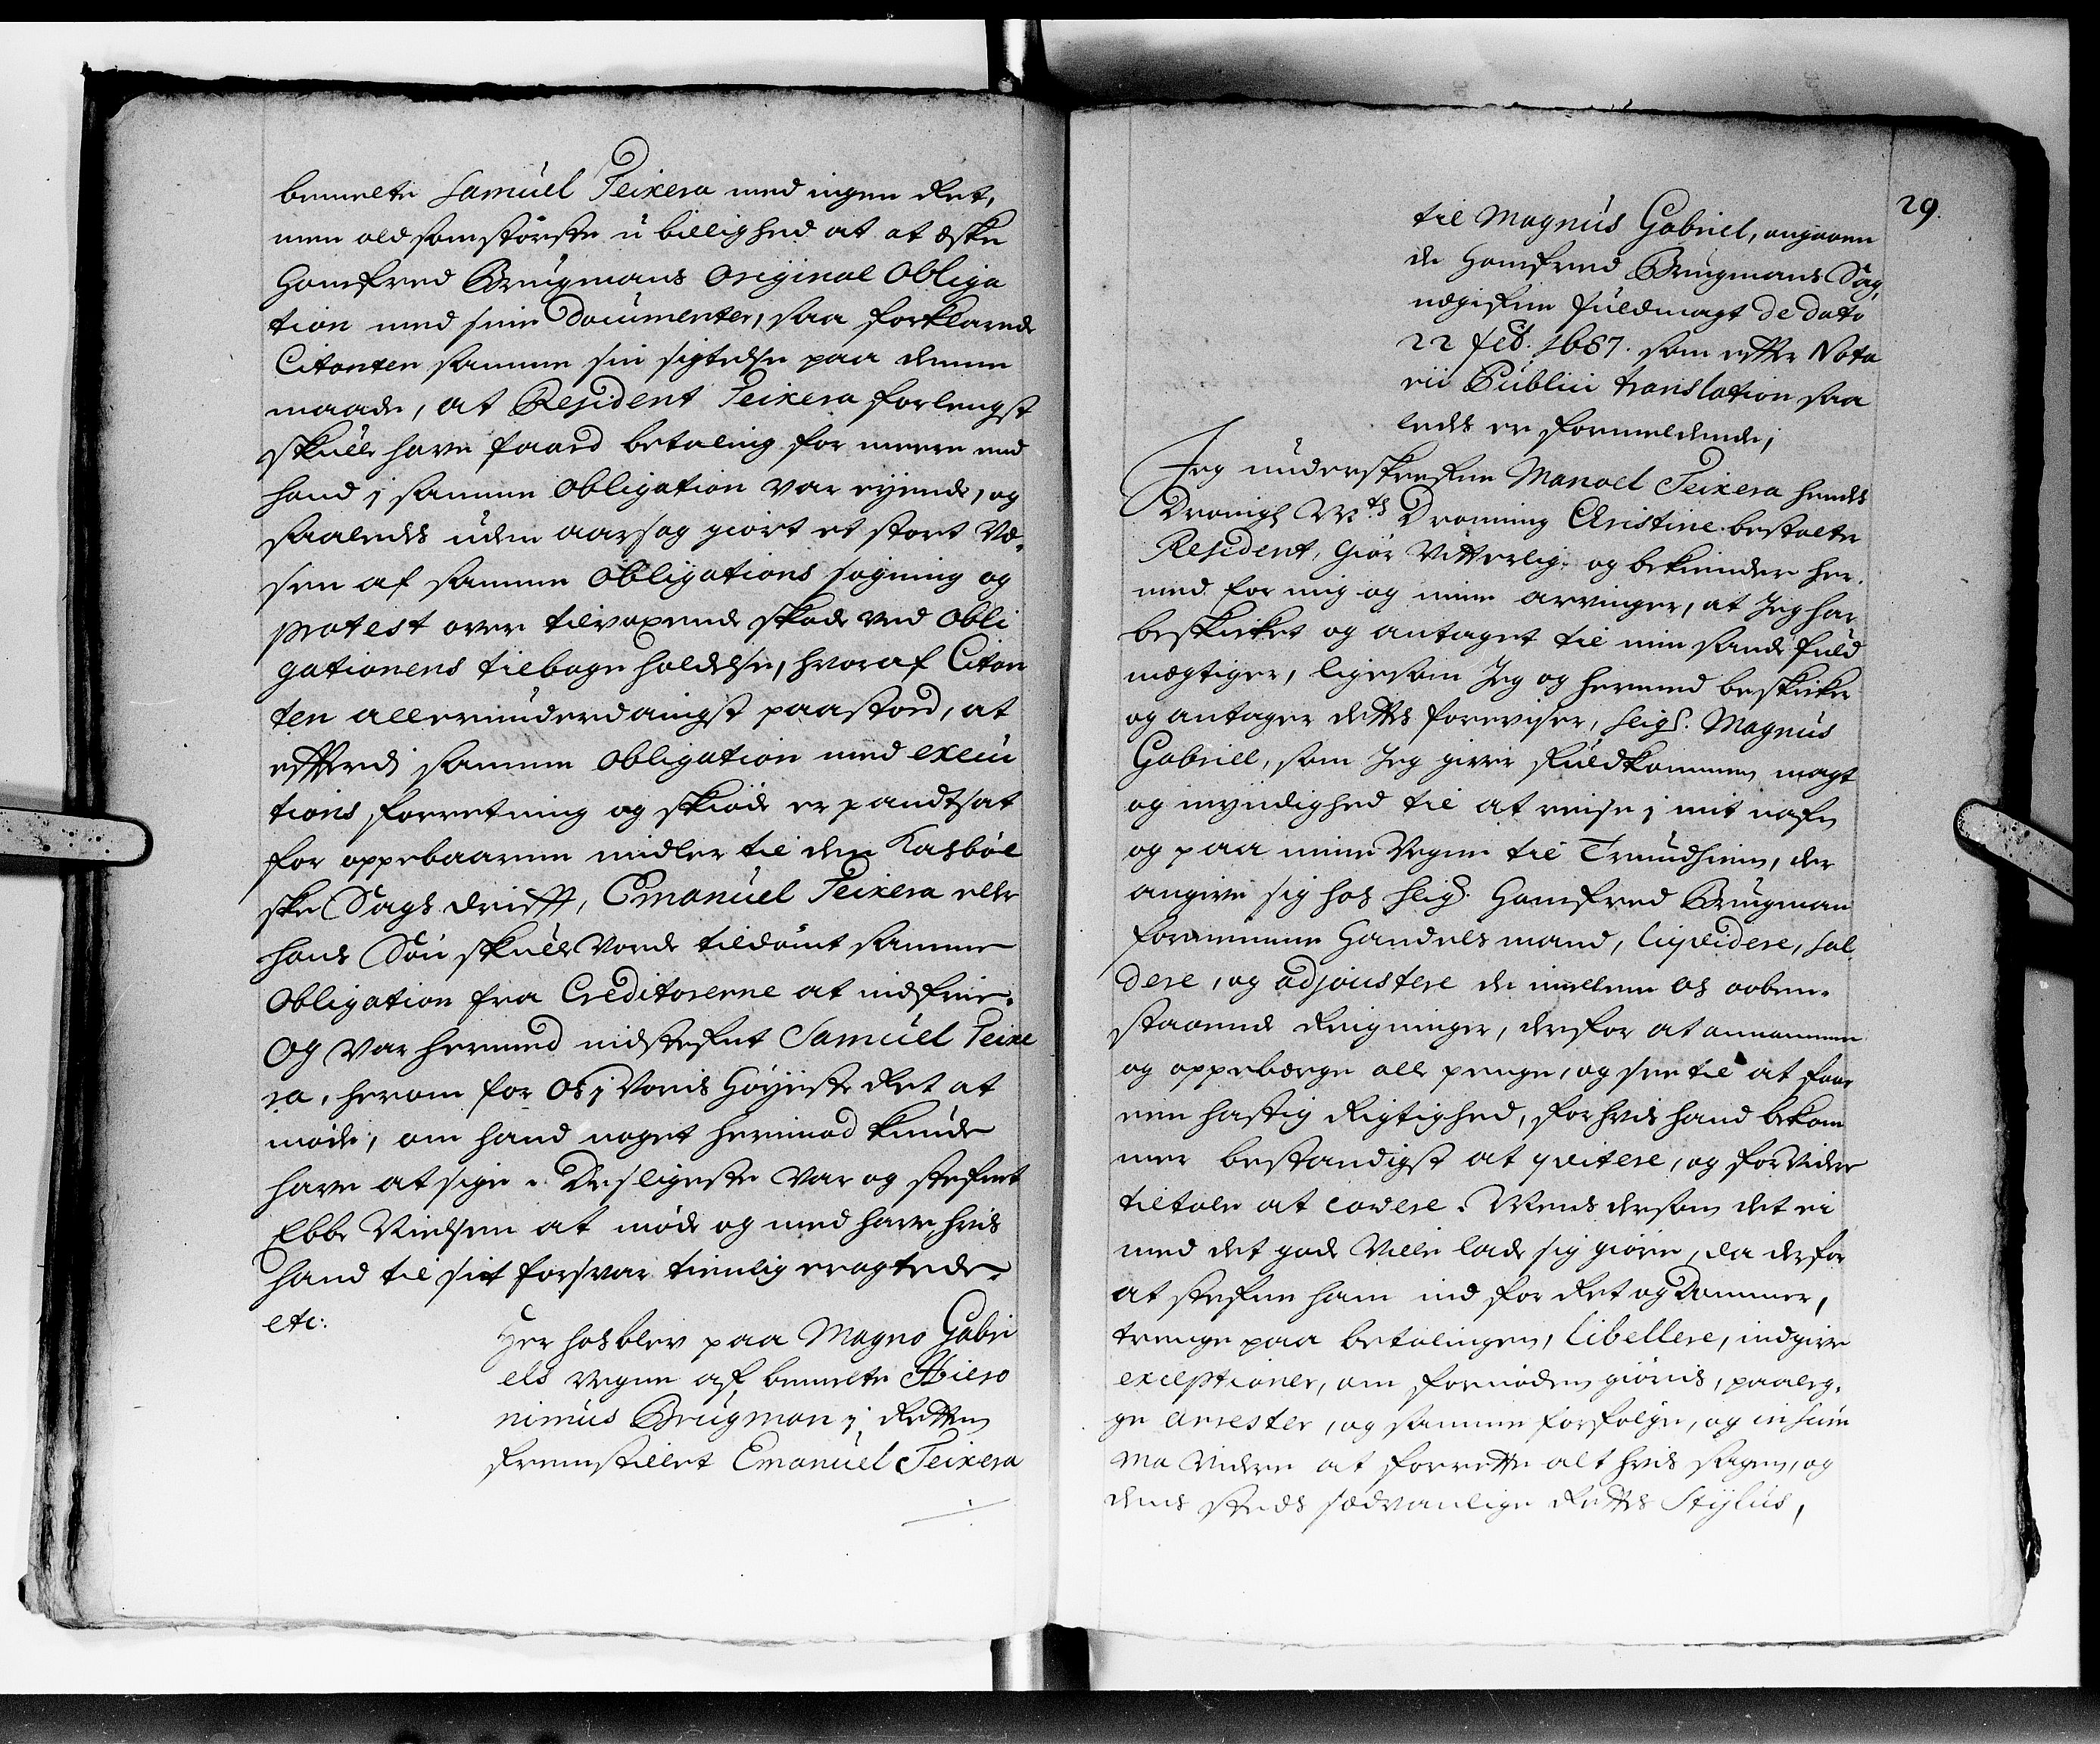 bemelte Samuel Teixera med ingen Ret,
men ald som största ubillighed at at æske
Gomfred Brugmans Original Obliga
tion med sine Documenter, saa forklarede
Citanten samme sin sigtelse paa denne
maade, at Resident Teixera forlengst
skulle have faaed betaling for meere end
hand i samme Obligation var eyende, og
saaledes uden aarsag giort et stort Væ-
sen af samme Obligations søgning og
protest over tilvoxende skade ved Obli
gationens tilbage holdelse, hvoraf Citan
ten allerunderdanigst paastod, at
efftterdi samme Obligation med execu
tions forretning og skiøde er pandtsat
for oppebaarne midler til den Kasbøl
ske Sags drifft, Emanuel Teixera eller
hans Søn skulle vorde tildømt samme
Obligation fra Creditorerne at indfrie.
Og var hermed indstefnt Samuel Teixe
ra, herom for Os i Voris Høyeste Ret at
møde, om hand noget herimod kunde
have at sige. Desligeste var og stefnt
Ebbe Nielsen at møde og med have, hvis
hand til sit forsvar tienlig eragtede.
etc:
Her hos blev paa Magno Gabri
els vegne af bemelte Hiero
nimus Brugman i Retten
fremstillet Emanuel Teixera
29.
til Magnus Gabriel, angaaen
de Gomfred Brugmans Sag,
udgifne fuldmagt de dato
22 feb. 1667. som effter Nota
rii Publici translation saa
ledes er formeldende;
Jeg underskrefne Manoel Teixera hendes
Dronigl Mts Dronning Christine bestalte
Resident, Giør Vitterlig og bekiender her
med for mig og mine arvinger, at Jeg har
beskicket og antaget til min sande fuld
mægtiger, ligesom Jeg og hermed beskicker
og antager dettes foreviser, Seigl. Magnus
Gabriell, som Jeg giver fuldkommen magt
og myndighed til at reise i mit nafn
og paa mine Vegne til Trundhiem, der
angive sig hos Seigl. Gomfred Brugman
fornemme Handels mand, liqvidere, sal
dere, og adjoustere de imellem os aaben-
staaende Regninger, derfor at annamme
og oppebærge alle penge, og see til at faae
een hastig Rigtighed, for hvis hand bekom
mer bestandigst at qvitere, og for videre
tiltale at cavere. Mens dersom det ei
med det gode Ville lade sig giøre, da derfor
at stefne ham ind for Ret og Dommer,
trenge paa betalingen, libellere, indgive
exceptioner, om fornøden giøris, paaleg-
ge arrester, og samme forfølge, og in sum
ma videre at forrette alt hvis sagen, og
dens steds sædvanlige Rettes Stylus,